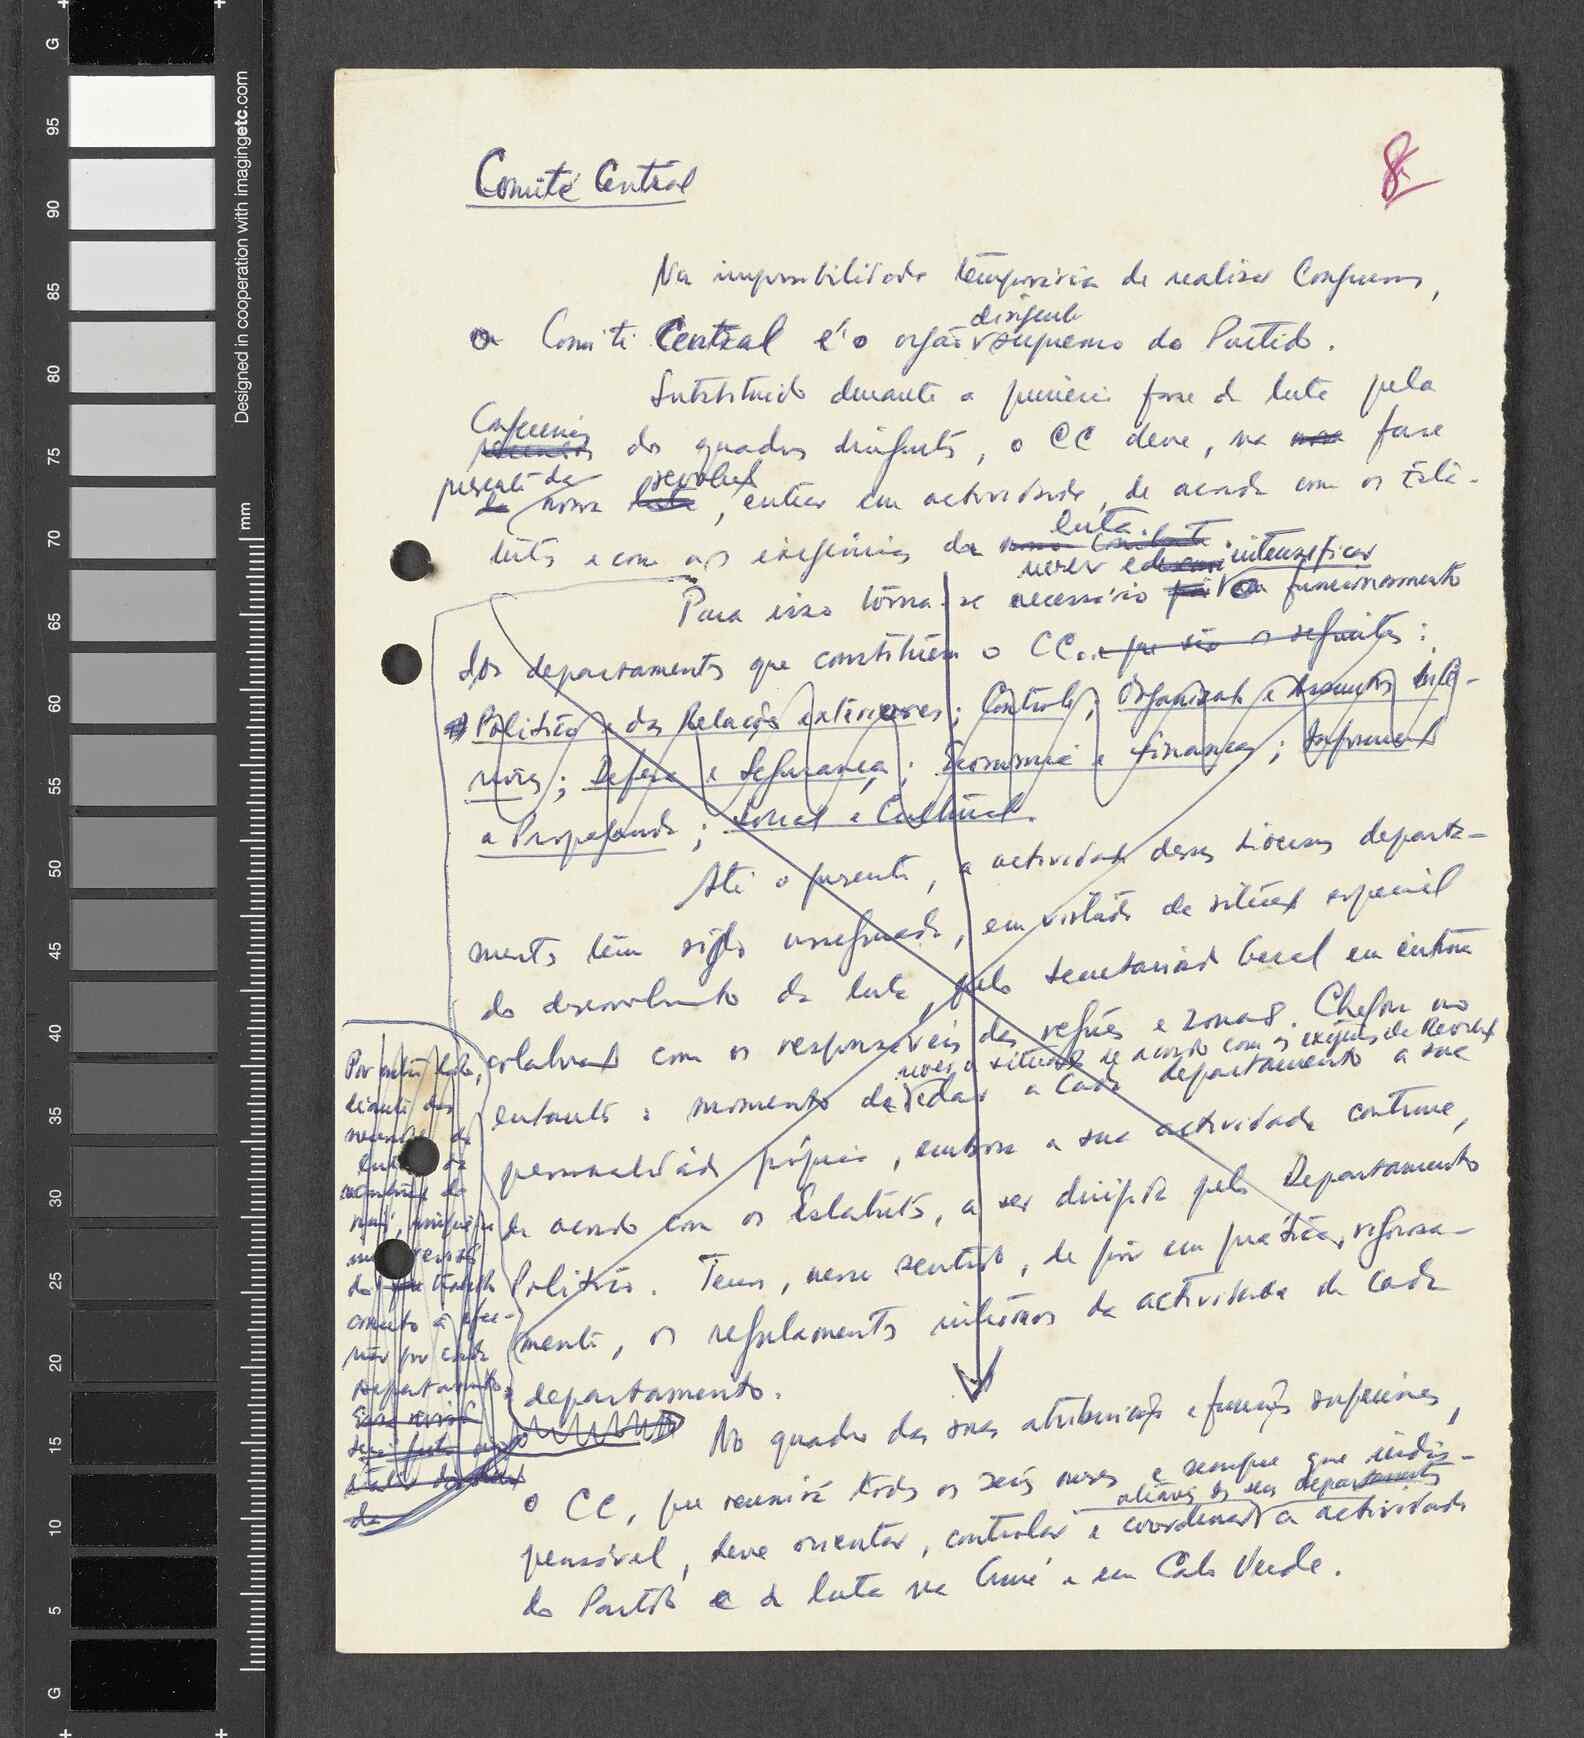 Comité Central
8.
Na impossibilidade temporária de realizar Congressos,
o Comité Central é o orgão dirigente supremo do Partido.
Substituido durante a primeira fase da luta pela
Conferência dos quadros dirigentes, o CC deve, na fase
presente da nossa revolução, entrar em actividade, de acordo com os Esta-
tutos e com as exigências da luta.
Para isso torna-se necessário rever e intensificar o funcionamento
dos departamentos que constituem o CC. e que são os seguintes:
Político e das Relações exteriores; Controle; Organização e Assuntos inte-
riores; Defesa e Segurança; Economia e Finanças; Informação
e Propaganda; Social e Cultural.
Até o presente, a actividade desses diversos departa-
mentos tem sido assegurada, em virtude da situação especial
do desenvolvimento da luta, pelo Secretariado Geral em íntima
colaboração com os responsáveis das regiões e zonas. Chegou no
entanto o momento de rever a situação de acordo com as exigências da Revolução e dar a cada departamento a sua
personalidade própria, embora a sua actividade continue,
de acordo com os Estatutos, a ser dirigida pelo Departamento
Político. Temos, nesse sentido, de pôr em prática, rigorosa-
mente, os regulamentos internos da actividade de cada
departamento.
Por outro lado,
membros do
do trabalho
concreto a
por cada
departamento.
No quadro das suas atribuições e funções superiores,
o CC, que reunirá todos os seis meses e sempre que indis-
pensável, deve orientar, controlar e coordenar através dos seus departamentos a actividade
do Partido e da luta na Guiné e em Cabo Verde.
Designed in cooperation with imagingetc.com
mm
G
95
90
85
80
75
70
65
60
55
50
45
40
35
30
25
20
15
10
5
G